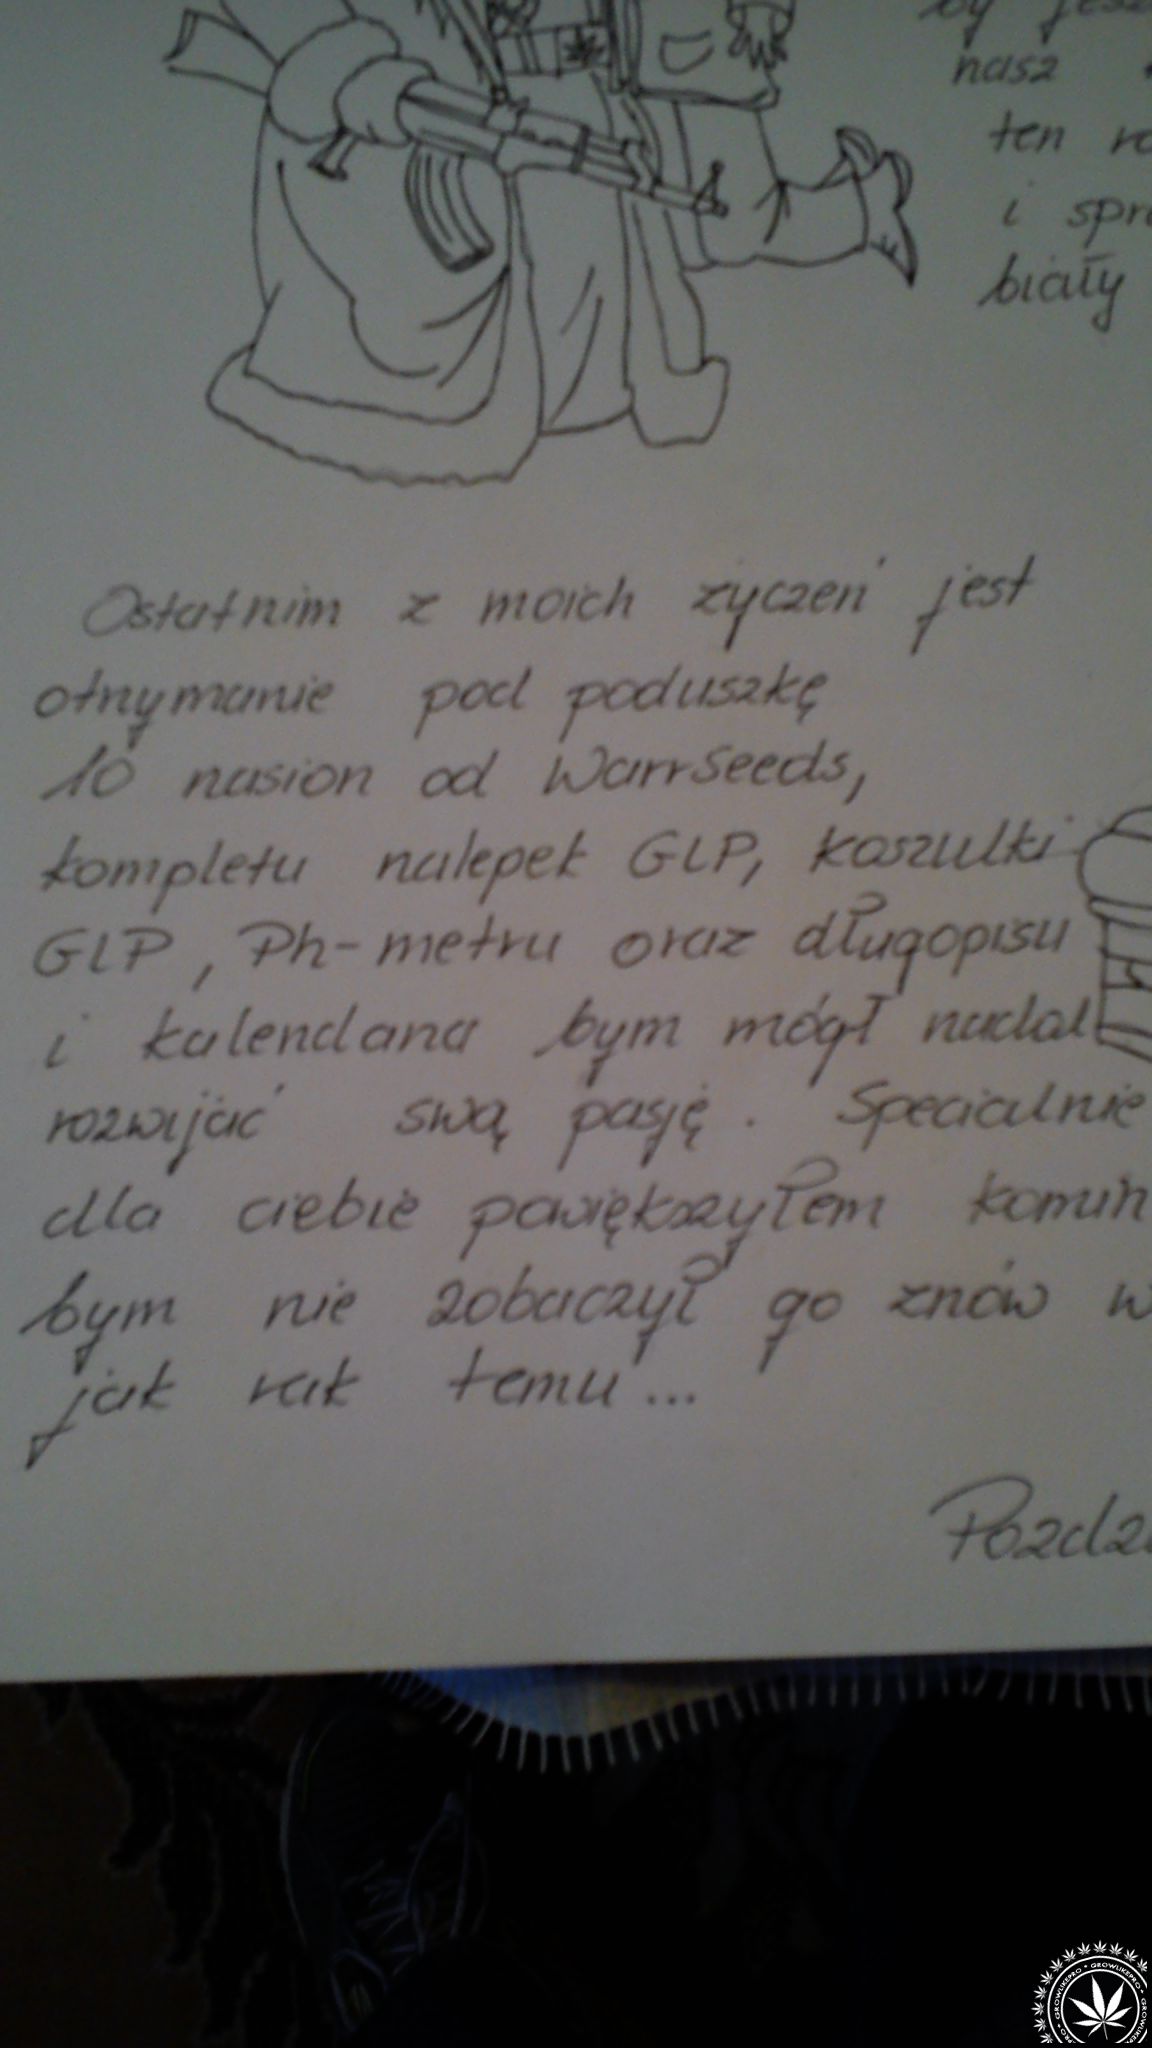 by jesz
nasz
ten ro
i spra
biały
Ostatnim z moich życzeń jest
otrzymanie pod poduszkę
10 nasion od WarrSeeds,
kompletu nalepek GLP, koszulki
GLP, Ph-metru oraz długopisu
i kalendarza bym mógł nadal
rozwijać swą pasję. Specialnie
dla ciebie powiększyłem komin
bym nie zobaczył go znów w
jak rak temu...
Pozdz
GROWLIKEPRO • GROWLIKEPRO